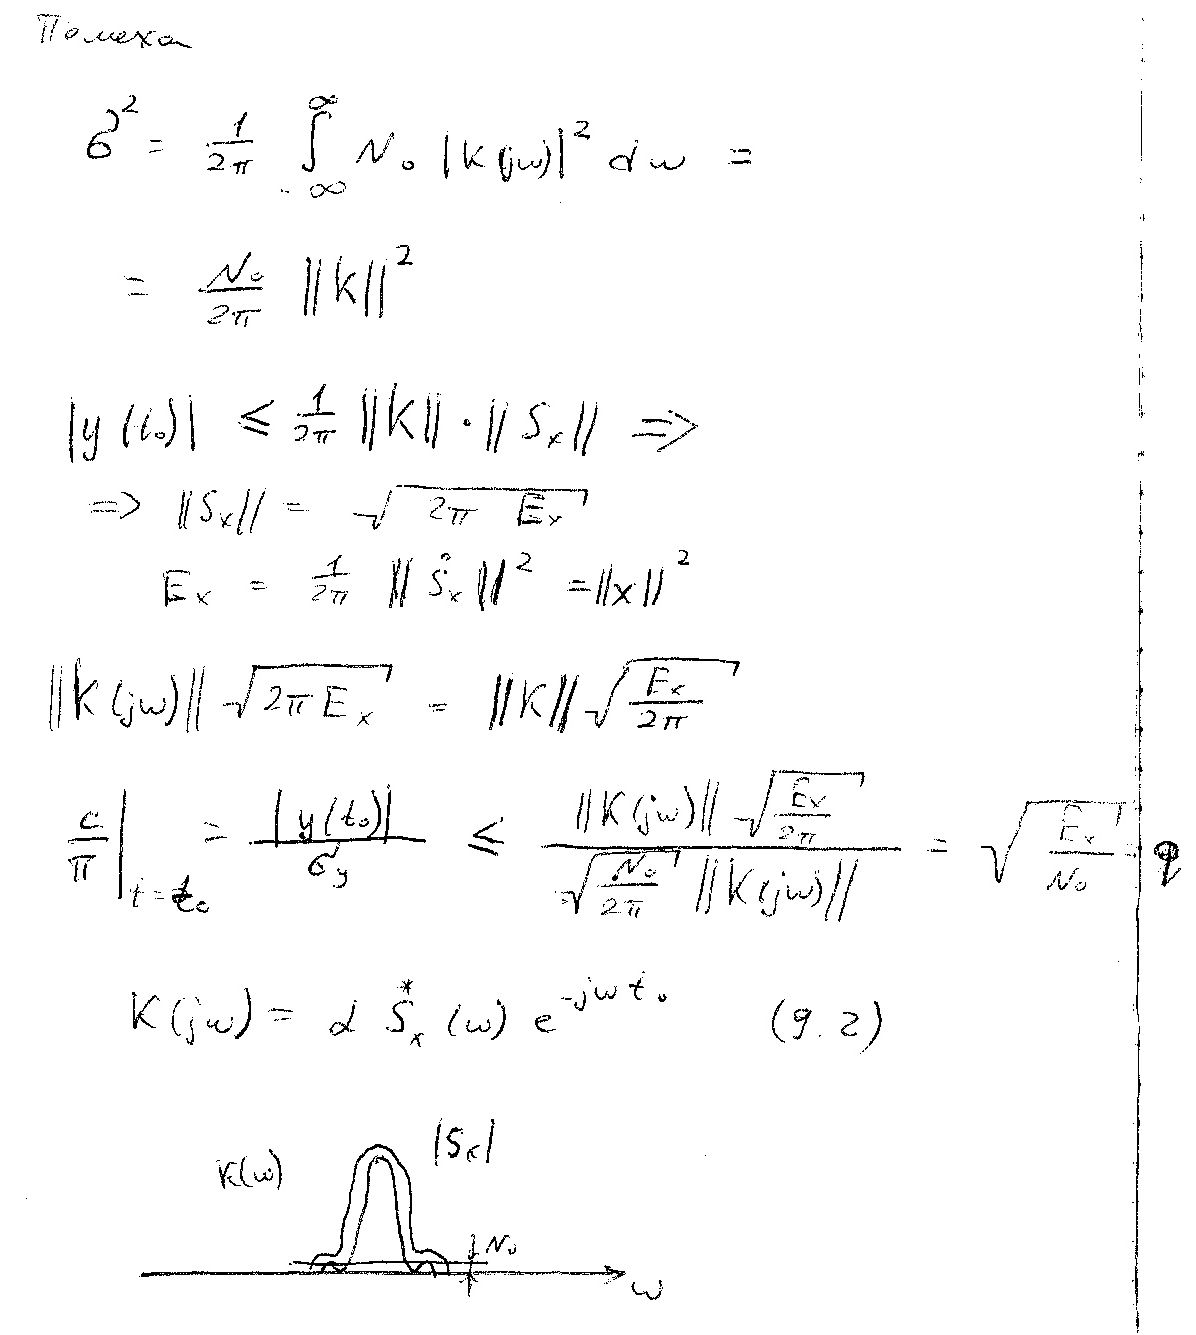 Помеха
σ² = 1/2π ∫_{-∞}^{∞} N₀ |K(jω)|² dω =
= N₀/2π ||K||²
|y(t₀)| ≤ 1/2π ||K|| · ||Sₓ|| ⇒
⇒ ||Sₓ|| = √(2π Eₓ)
Eₓ = 1/2π ||Ṡₓ||² = ||x||²
||K(jω)|| √(2π Eₓ) = ||K|| √(Eₓ/2π)
c/п |_{t=t₀} = |y(t₀)|/σ_y ≤ ||K(jω)|| √(Eₓ/2π) / √(N₀/2π) ||K(jω)|| = √(Eₓ/N₀) = q
K(jω) = α Ṡ*ₓ(ω) e^{-jωt₀} (9.2)
K(ω) |Sₓ|
N₀
ω